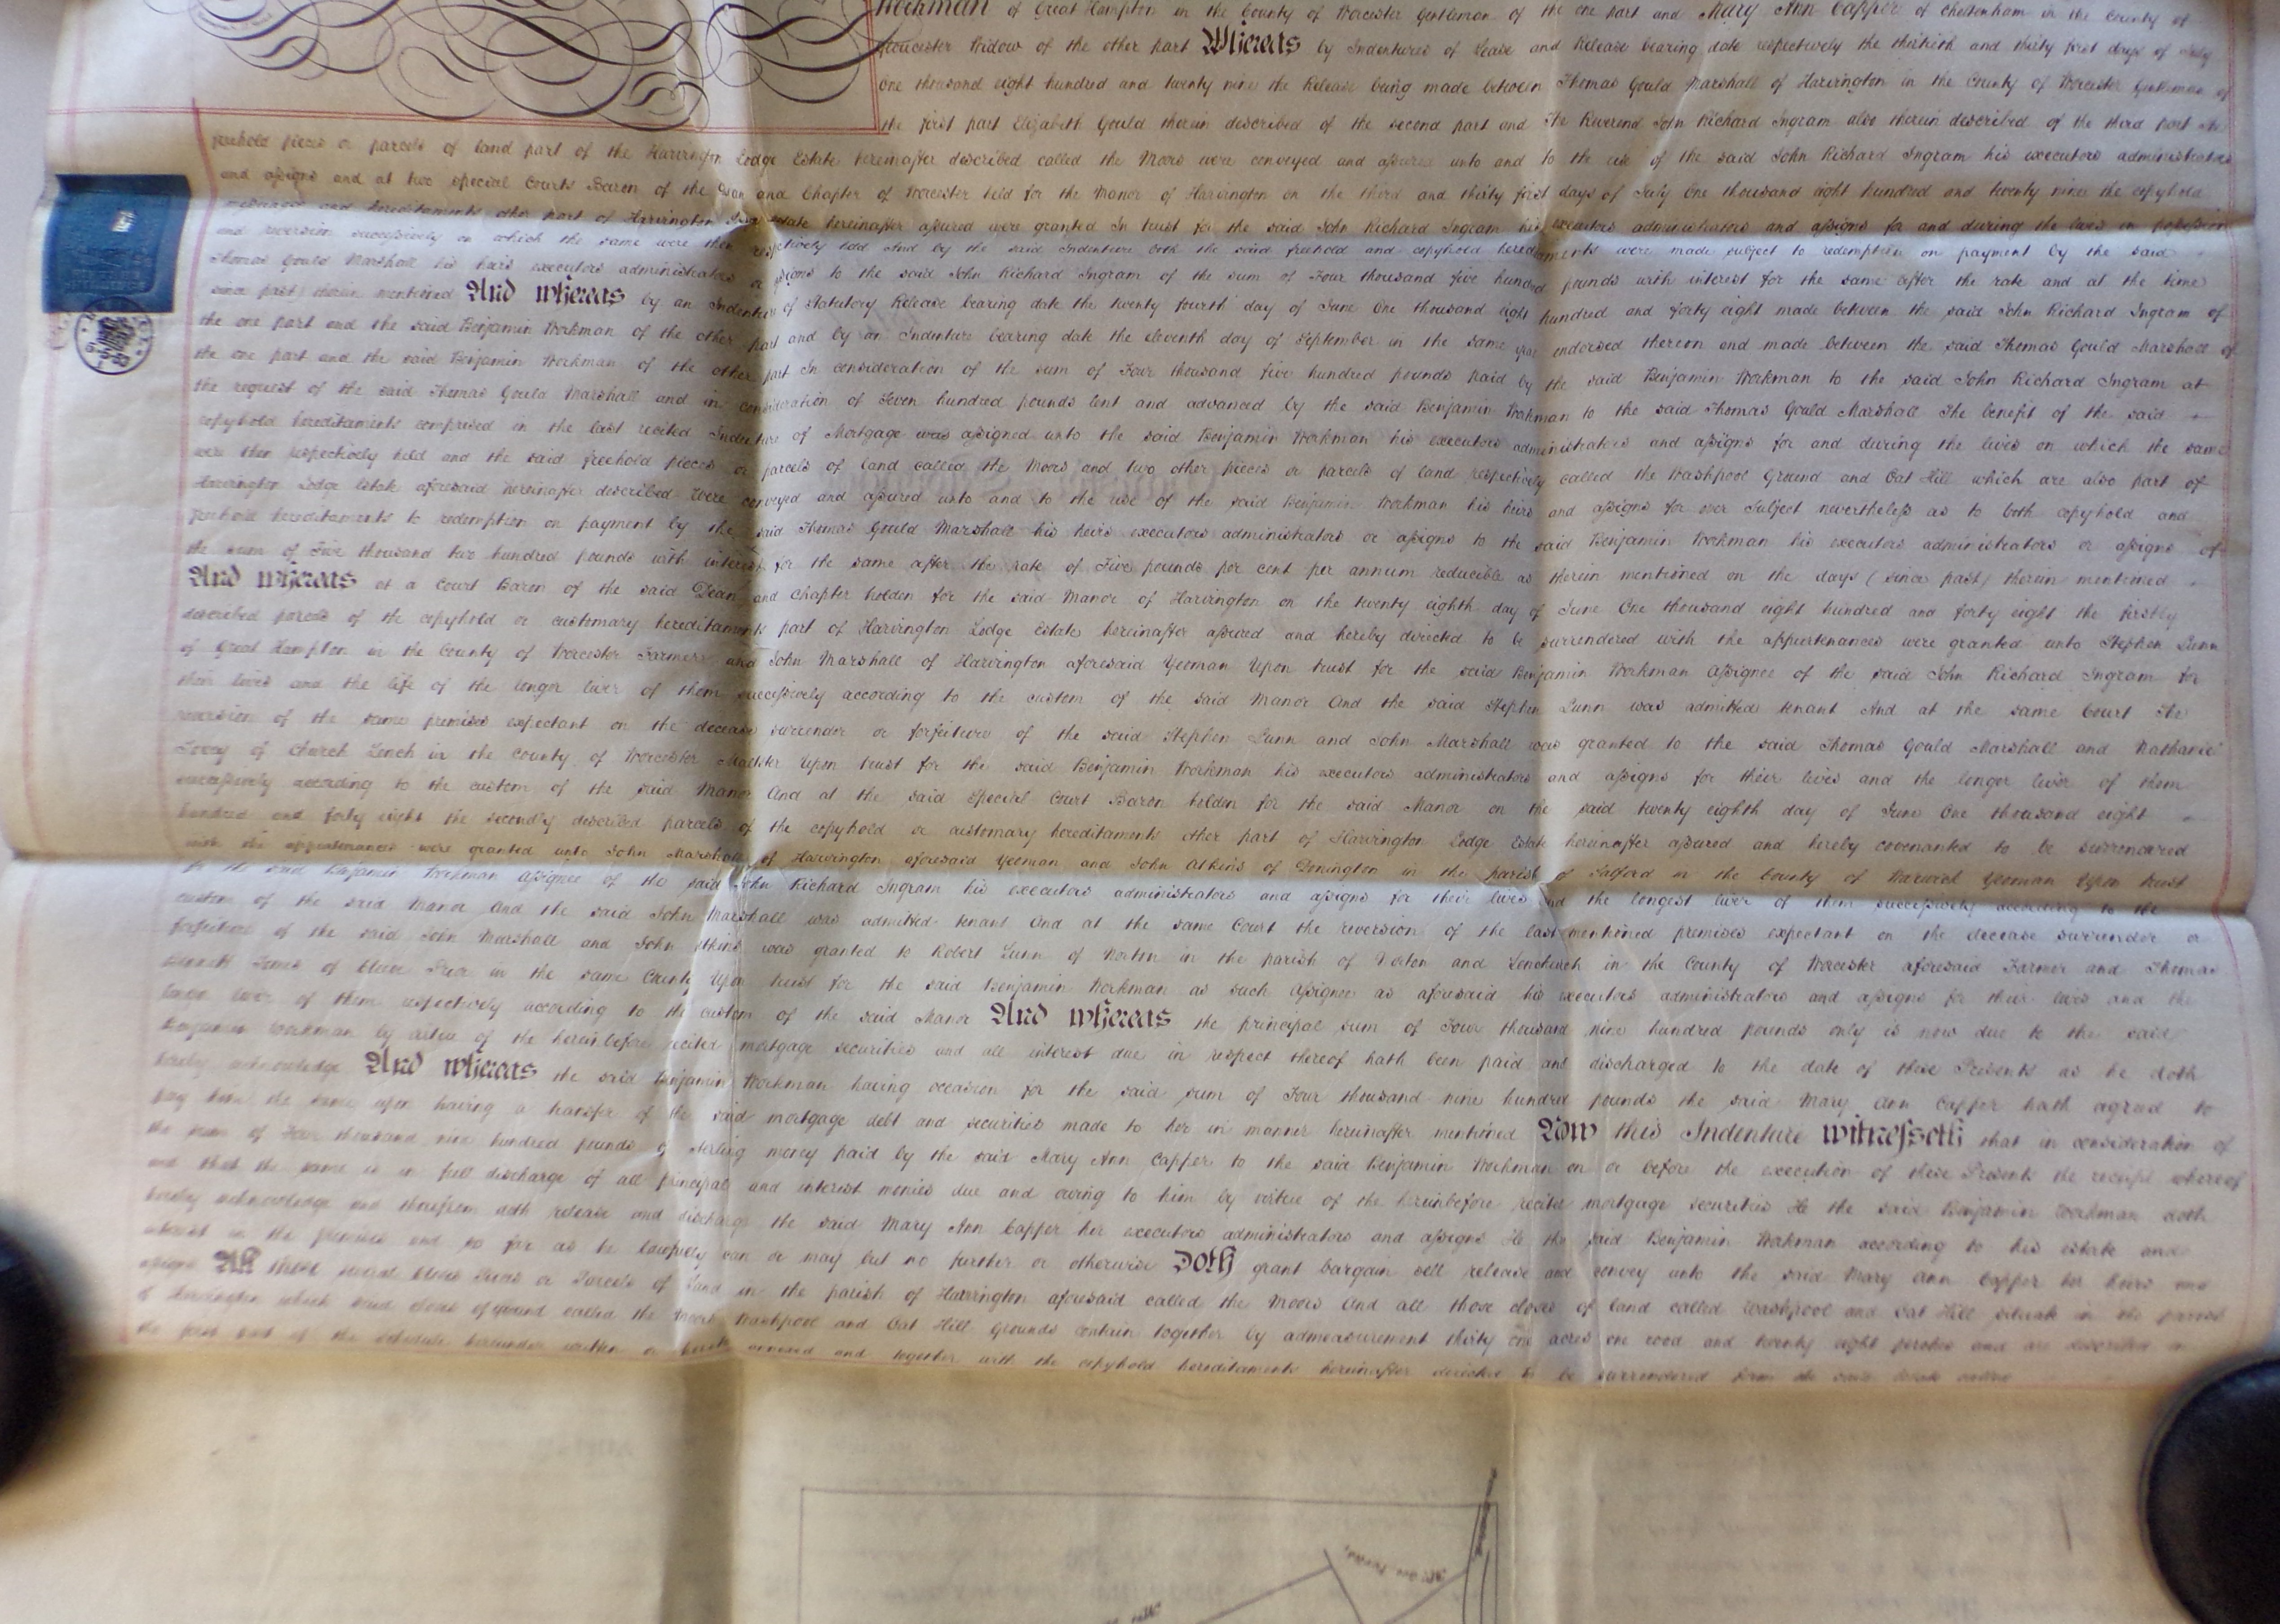 Workman of Great Hampton in the County of Worcester Gentleman of the one part and Mary Ann Capper of Cheltenham in the County of
Gloucester Widow of the other part Whereas by Indentures of Lease and Release bearing date respectively the thirtieth and thirty first days of July
One thousand eight hundred and twenty nine the Release being made between Thomas Gould Marshall of Harvington in the County of Worcester Gentleman of
the first part Elizabeth Gould therein described of the second part and The Reverend John Richard Ingram also therein described of the third part the
freehold pieces or parcels of land part of the Harvington Lodge Estate hereinafter described called the Moors were conveyed and assured unto and to the use of the said John Richard Ingram his executors administrators
and assigns and at two special Courts Baron of the Dean and Chapter of Worcester held for the Manor of Harvington on the third and thirty first days of July One thousand eight hundred and twenty nine the copyhold
messuages and hereditaments other part of Harvington Lodge Estate hereinafter assured were granted In trust for the said John Richard Ingram his executors administrators and assigns for and during the lives in possession
and reversion successively on which the same were then respectively held And by the said Indenture both the said freehold and copyhold hereditaments were made subject to redemption on payment by the said
Thomas Gould Marshall his heirs executors administrators or assigns to the said John Richard Ingram of the sum of Four thousand five hundred pounds with interest for the same after the rate and at the time
since past therein mentioned And whereas by an Indenture of Statutory Release bearing date the twenty fourth day of June One thousand eight hundred and forty eight made between the said John Richard Ingram of
the one part and the said Benjamin Workman of the other part and by an Indenture bearing date the eleventh day of September in the same year endorsed thereon and made between the said Thomas Gould Marshall of
the one part and the said Benjamin Workman of the other part In consideration of the sum of Four thousand five hundred pounds paid by the said Benjamin Workman to the said John Richard Ingram at
the request of the said Thomas Gould Marshall and in consideration of Seven hundred pounds lent and advanced by the said Benjamin Workman to the said Thomas Gould Marshall The benefit of the said
copyhold hereditaments comprised in the last recited Indenture of Mortgage was assigned unto the said Benjamin Workman his executors administrators and assigns for and during the lives on which the same
were then respectively held and the said freehold pieces or parcels of land called the Moors and two other pieces or parcels of land respectively called the Washpool Ground and Oat Hill which are also part of
Harvington Lodge Estate aforesaid hereinafter described were conveyed and assured unto and to the use of the said Benjamin Workman his heirs and assigns for ever Subject nevertheless as to both copyhold and
freehold hereditaments to redemption on payment by the said Thomas Gould Marshall his heirs executors administrators or assigns to the said Benjamin Workman his executors administrators or assigns of
the sum of Five thousand two hundred pounds with interest for the same after the rate of Five pounds per cent per annum reducible as therein mentioned on the days (since past) therein mentioned
And whereas at a Court Baron of the said Dean and Chapter holden for the said Manor of Harvington on the twenty eighth day of June One thousand eight hundred and forty eight the firstly
described parcels of the copyhold or customary hereditaments part of Harvington Lodge Estate hereinafter assured and hereby directed to be surrendered with the appurtenances were granted unto Stephen Lunn
of Great Hampton in the County of Worcester Farmer and John Marshall of Harvington aforesaid Yeoman Upon trust for the said Benjamin Workman Assignee of the said John Richard Ingram for
their lives and the life of the longer liver of them successively according to the custom of the said Manor And the said Stephen Lunn was admitted tenant And at the same Court The
reversion of the same premises expectant on the decease surrender or forfeiture of the said Stephen Lunn and John Marshall was granted to the said Thomas Gould Marshall and Nathaniel
Tovey of Church Lench in the County of Worcester Maltster Upon trust for the said Benjamin Workman his executors administrators and assigns for their lives and the longer liver of them
successively according to the custom of the said Manor And at the said Special Court Baron holden for the said Manor on the said twenty eighth day of June One thousand eight
hundred and forty eight the secondly described parcels of the copyhold or customary hereditaments other part of Harvington Lodge Estate hereinafter assured and hereby covenanted to be surrendered
with the appurtenances were granted unto John Marshall of Harvington aforesaid Yeoman and John Atkins of Donington in the parish of Salford in the County of Warwick Yeoman Upon trust
for the said Benjamin Workman Assignee of the said John Richard Ingram his executors administrators and assigns for their lives and the longest liver of them successively according to the
custom of the said Manor And the said John Marshall was admitted tenant And at the same Court the reversion of the last mentioned premises expectant on the decease surrender or
forfeiture of the said John Marshall and John Atkins was granted to Robert Lunn of Norton in the parish of Norton and Lenchwick in the County of Worcester aforesaid Farmer and Thomas
of Cleeve Prior in the same County Upon trust for the said Benjamin Workman as such Assignee as aforesaid his executors administrators and assigns for their lives and the
longer liver of them respectively according to the custom of the said Manor And whereas the principal sum of Four thousand nine hundred pounds only is now due to the said
Benjamin Workman by virtue of the hereinbefore recited mortgage securities and all interest due in respect thereof hath been paid and discharged to the date of these Presents as he doth
hereby acknowledge And whereas the said Benjamin Workman having occasion for the said sum of Four thousand nine hundred pounds the said Mary Ann Capper hath agreed to
pay him the same upon having a transfer of the said mortgage debt and securities made to her in manner hereinafter mentioned Now this Indenture witnesseth that in consideration of
the sum of Four thousand nine hundred pounds of sterling money paid by the said Mary Ann Capper to the said Benjamin Workman on or before the execution of these Presents the receipt whereof
and that the same is in full discharge of all principal and interest monies due and owing to him by virtue of the hereinbefore recited mortgage securities He the said Benjamin Workman doth
hereby acknowledge and therefrom doth release and discharge the said Mary Ann Capper her executors administrators and assigns He the said Benjamin Workman according to his estate and
interest in the premises and so far as he lawfully can or may but no further or otherwise Doth grant bargain sell release and convey unto the said Mary Ann Capper her heirs and
assigns All those several closes pieces or Parcels of Land in the parish of Harvington aforesaid called the Moors And all those closes of land called Washpool and Oat Hill situate in the parish
of Harvington which said closes of ground called the Moors Washpool and Oat Hill Grounds contain together by admeasurement thirty one acres one rood and twenty eight perches and are described in
the first part of the schedule hereunder written or hereto annexed and together with the copyhold hereditaments hereinafter directed to be surrendered form the said